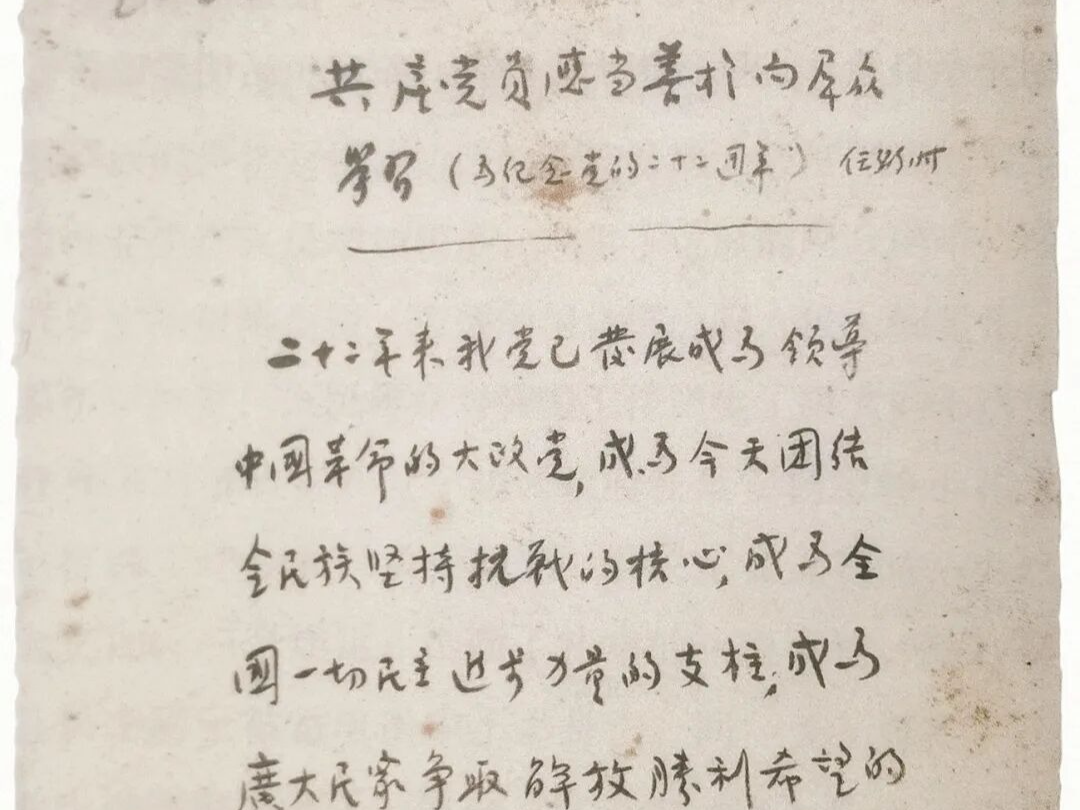 共产党员應当善於向群众
學習（为纪念党的二十二週年）任弼时
二十二年来我党已發展成为领导
中國革命的大政党，成为今天团结
全民族坚持抗戰的核心，成为全
國一切民主進步力量的支柱，成为
廣大民众争取解放勝利希望的